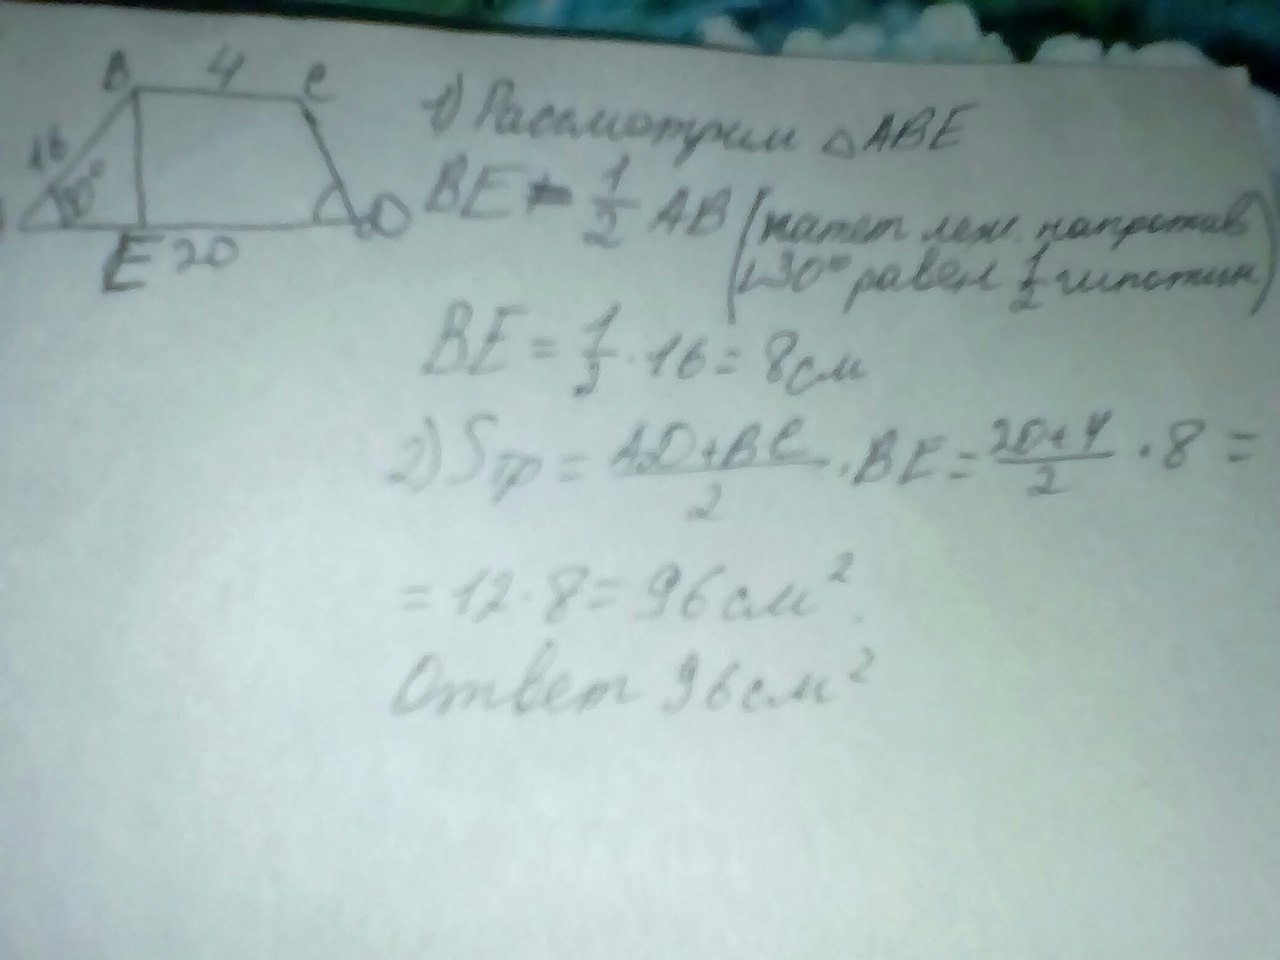 B 4 C
16
30°
E 20 D
1) Рассмотрим △ABE
BE = 1/2 AB (катет леж. напротив
∠30° равен 1/2 гипотен)
BE = 1/2 · 16 = 8см
2) Sтр = AD+BC/2 · BE = 20+4/2 · 8 =
= 12 · 8 = 96 см².
Ответ 96 см²